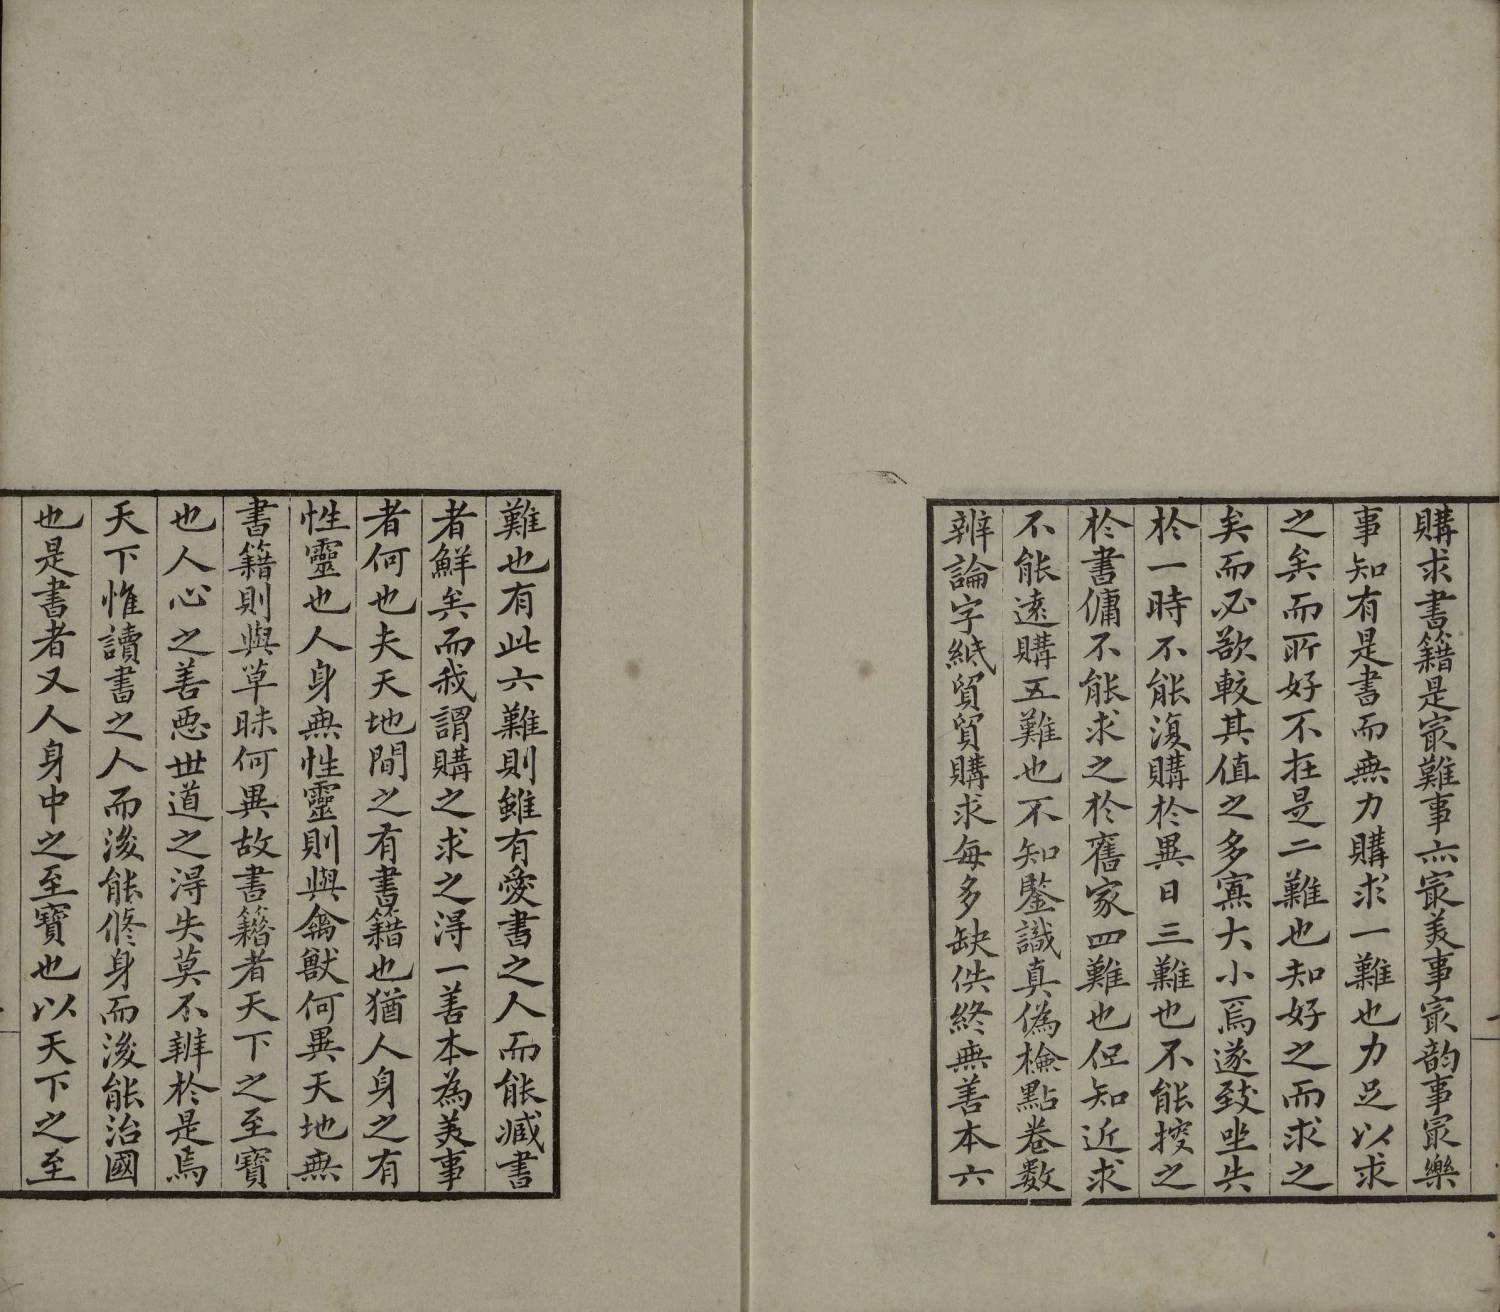 購求書籍是㝡難事亦㝡美事㝡韵事㝡樂
事知有是書而無力購求一難也力足以求
之矣而所好不在是二難也知好之而求之
矣而必欲較其值之多寡大小焉遂致坐失
於一時不能復購於異日三難也不能搜之
於書傭不能求之於舊家四難也但知近求
不能遠購五難也不知鑒識真偽檢點卷數
辨論字紙貿貿購求每多缺佚終無善本六
難也有此六難則雖有愛書之人而能藏書
者鮮矣而我謂購之求之得一善本為美事
者何也夫天地間之有書籍也猶人身之有
性靈也人身無性靈則與禽獸何異天地無
書籍則與草昧何異故書籍者天下之至寶
也人心之善惡世道之得失莫不辨於是焉
天下惟讀書之人而後能修身而後能治國
也是書者又人身中之至寶也以天下之至